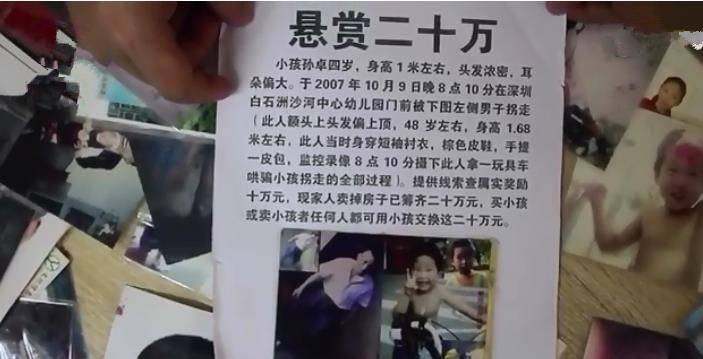 悬赏二十万
小孩孙卓四岁，身高1米左右，头发浓密，耳
朵偏大。于2007年10月9日晚8点10分在深圳
白石洲沙河中心幼儿园门前被下图左侧男子拐走
（此人额头上头发偏上顶，48岁左右，身高1.68
米左右，此人当时身穿短袖衬衣，棕色皮鞋，手提
一皮包，监控录像8点10分摄下此人拿一玩具车
哄骗小孩拐走的全部过程）。提供线索查属实奖励
十万元，现家人卖掉房子已筹齐二十万元，买小孩
或卖小孩者任何人都可用小孩交换这二十万元。